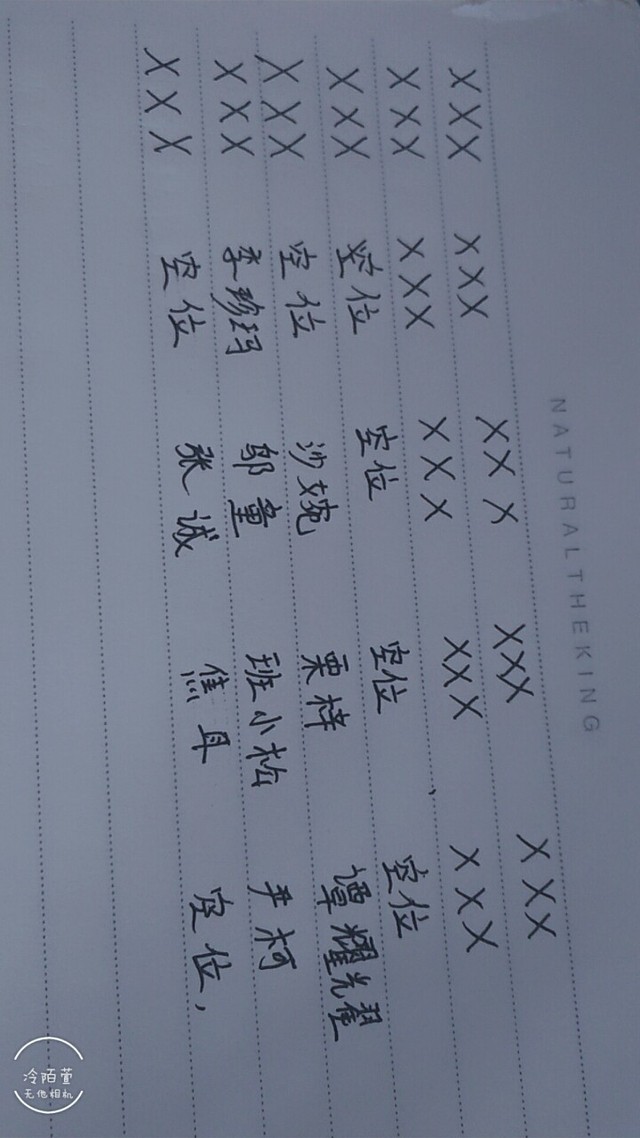 NATURALTHEKING
XXX XXX XXX XXX XXX
XXX XXX XXX XXX XXX
XXX 空位 空位 空位 空位
XXX 空位 沙婉 栗梓 谭耀耀
XXX 李珍玛 邬童 班小松 尹柯
XXX 空位 张诚 焦耳 空位，
冷陌萱
无他相机